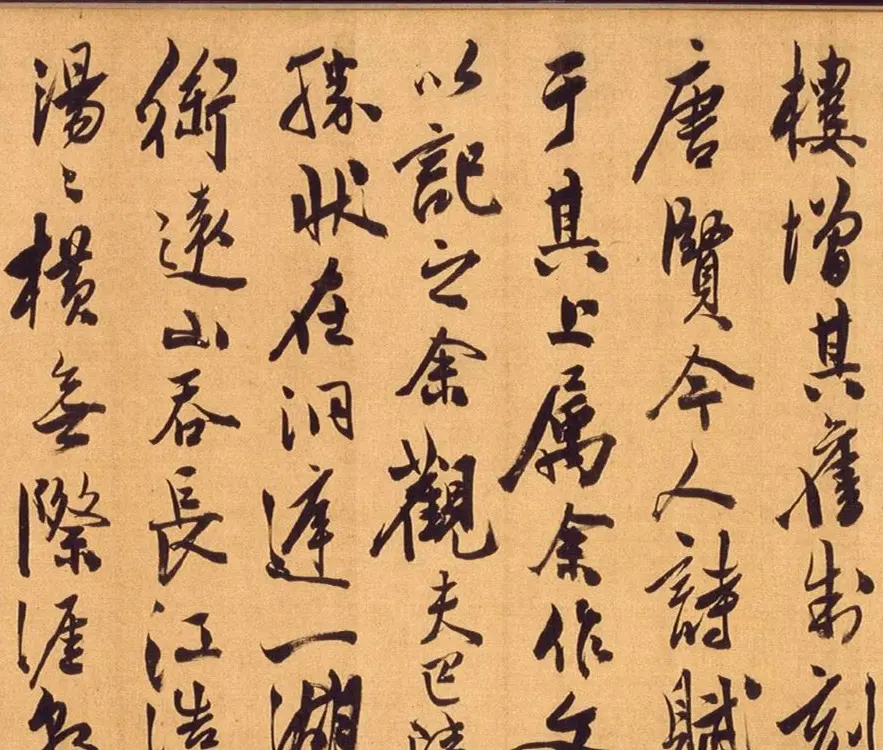 樓增其舊制刻
唐賢今人詩賦
于其上属余作文
以記之余觀夫巴陵
勝狀在洞庭一湖
銜遠山吞長江浩
湯〻橫無際涯朝